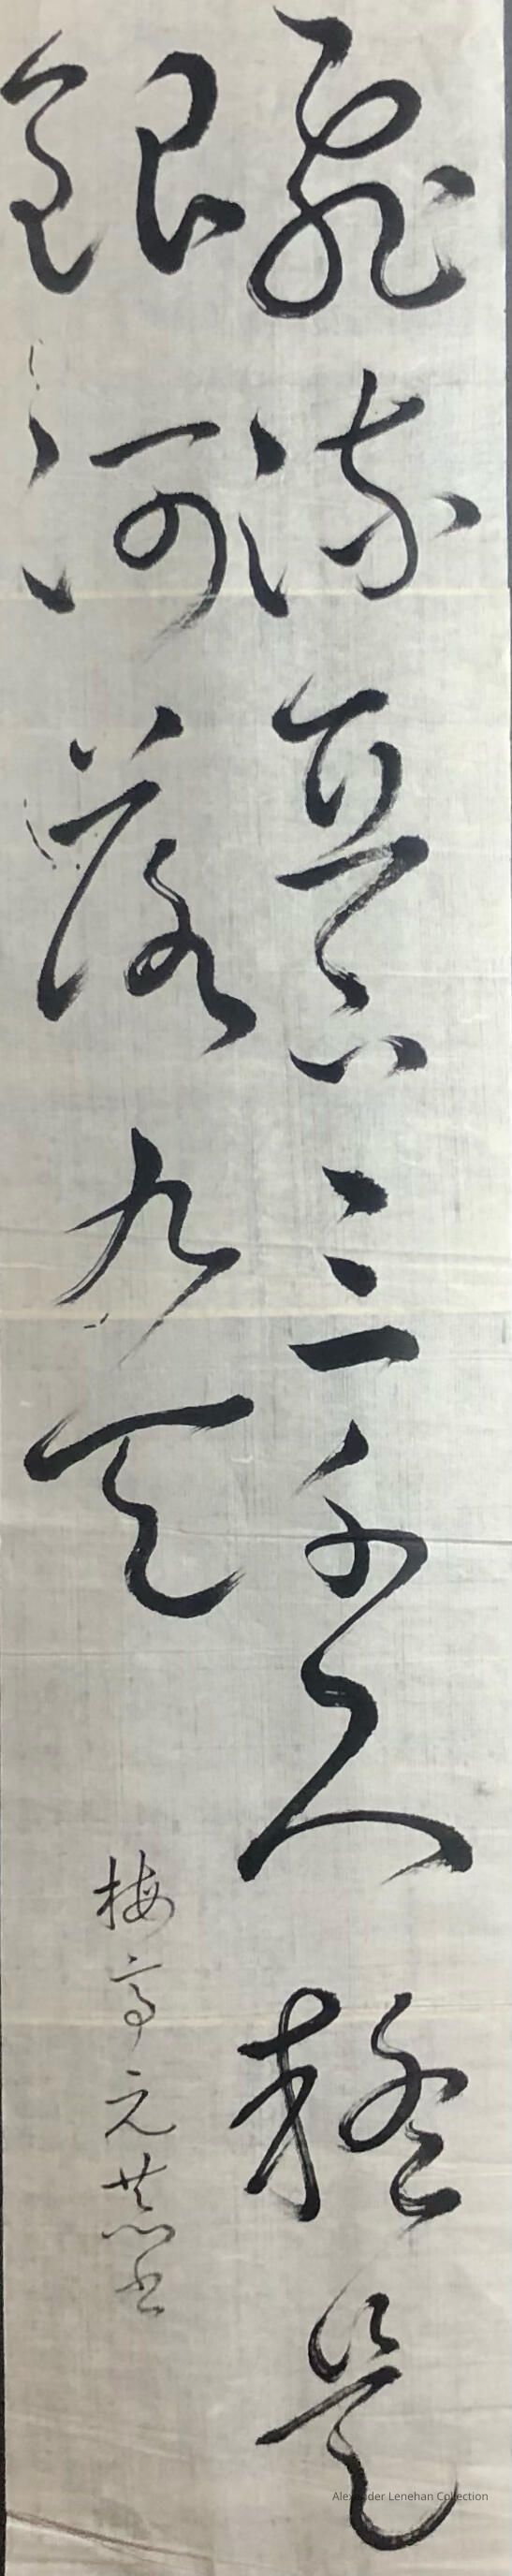 飛流直下三千尺疑是
銀河落九天
梅亭元恭書
Alexander Lenehan Collection